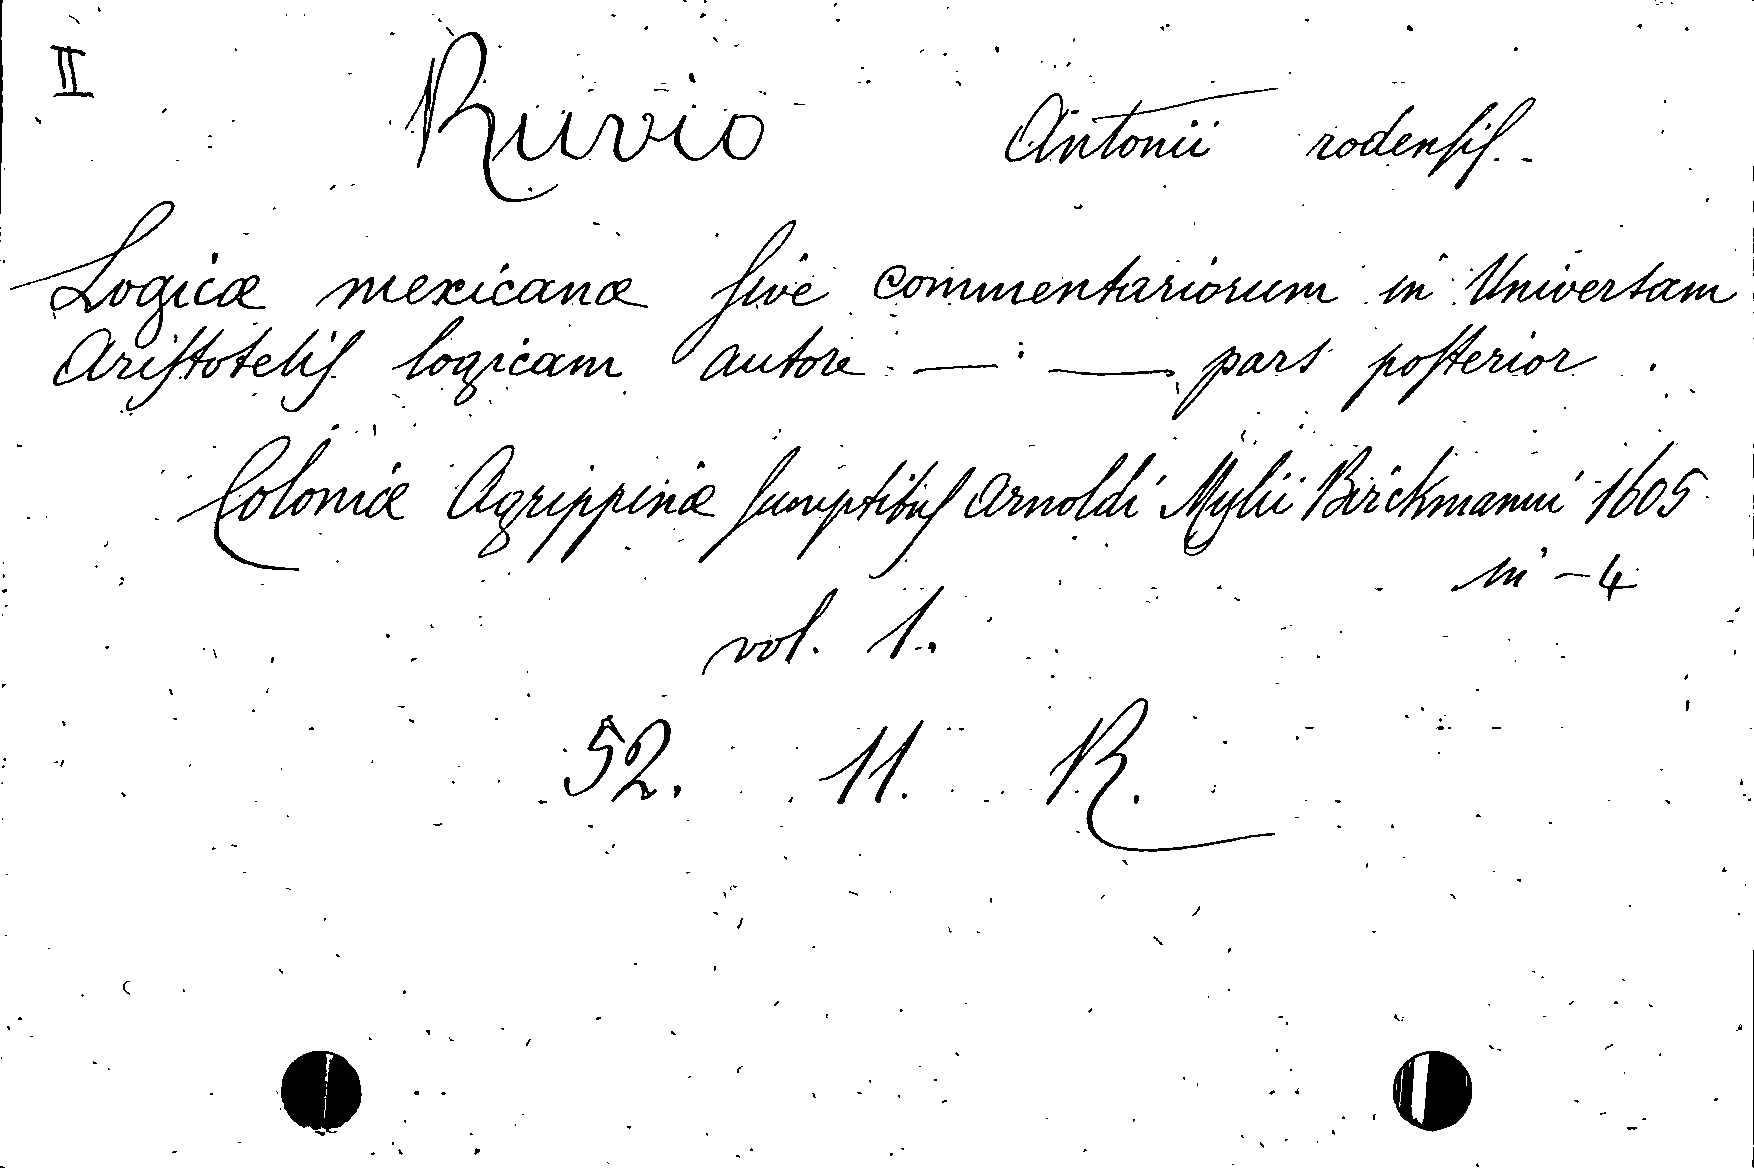 II Ruvio Antonii rodensiſ.
Logicæ mexicanæ ſive commentariorum in Universam
Ariſtoteliſ logicam autore — — pars poſterior
Coloniæ Agrippinæ ſumptibuſ Arnoldi Mylii Birckmanni 1605
in-4
vol. 1.
52. 11. R.